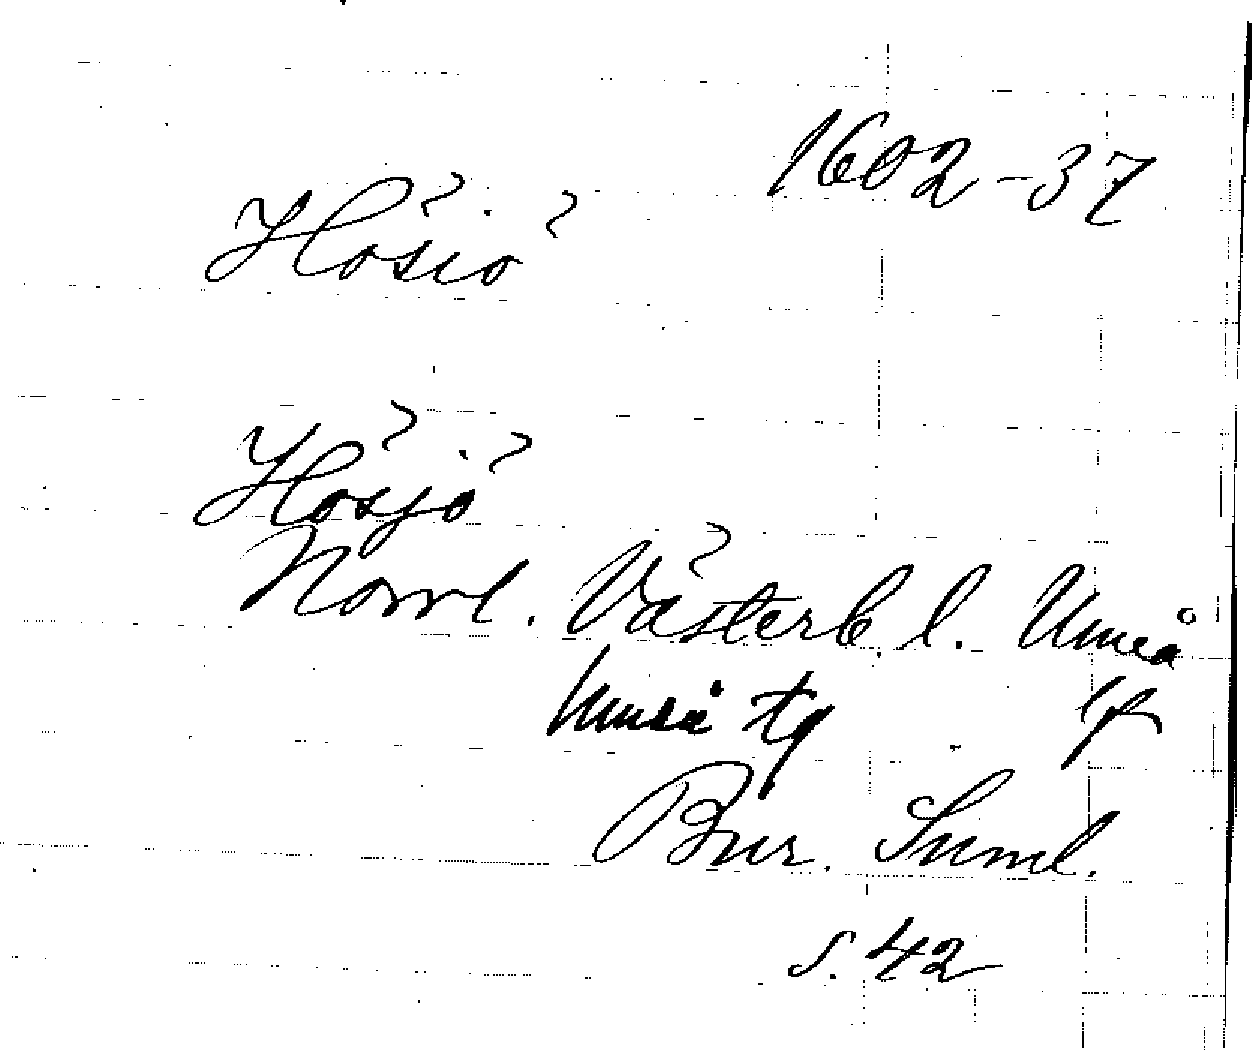 1602-37
Hösiö
Hösjö
Norrl. Västerb. l. Umeå
Umeå tg
Bur. Suml.
s. 42